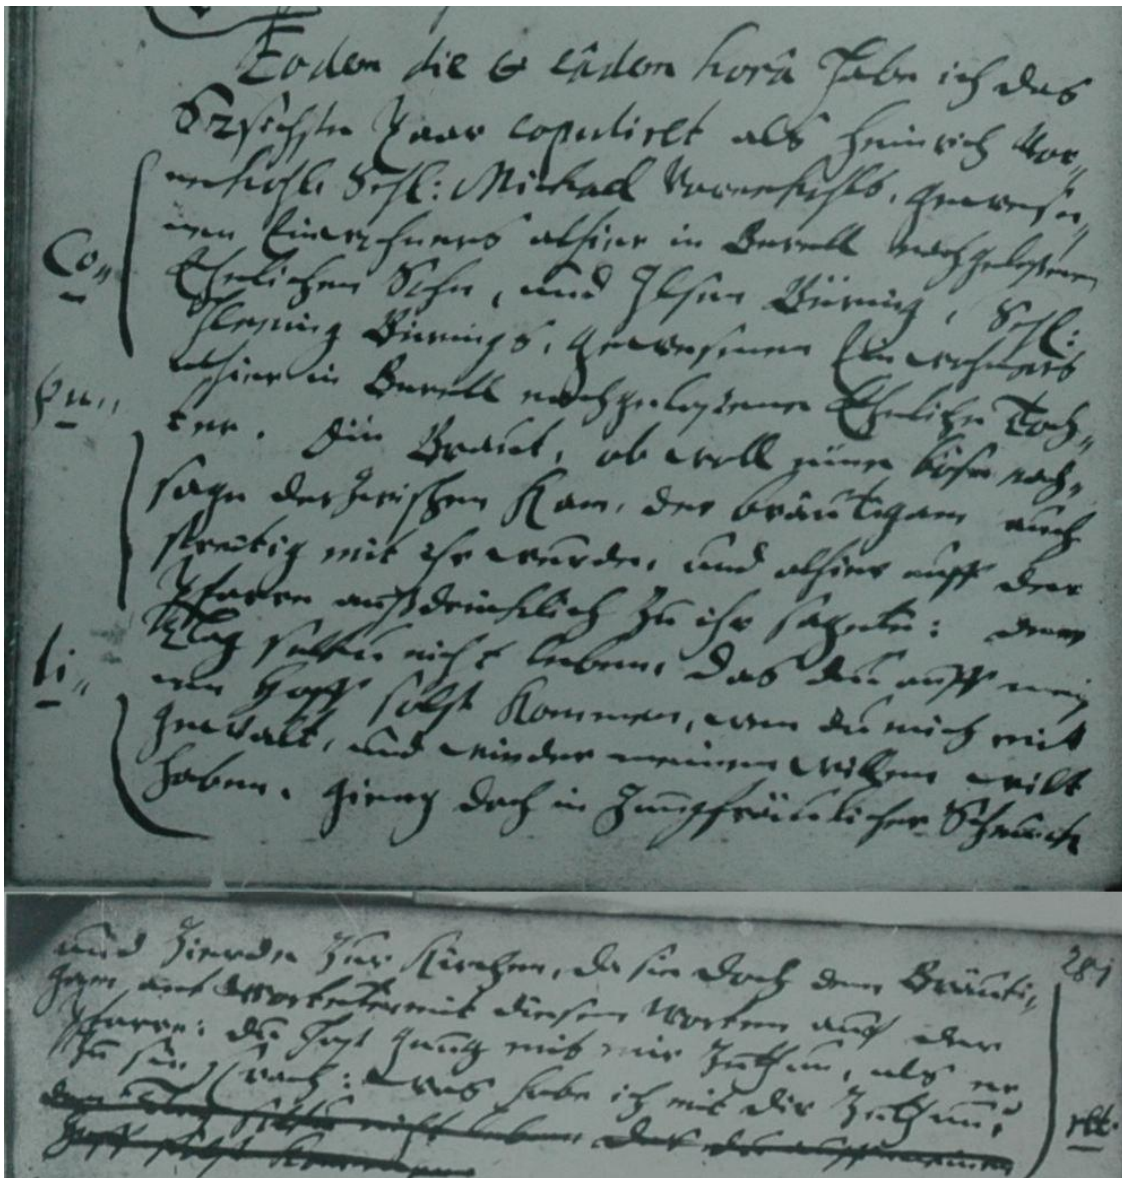 Eodem die & eâdem horâ habe ich das
Sechste Paar copulirt als Heinrich Vor„
Sehl: Michael gewese„
nen Einwohners alhier in Berell nachgelaßenen
Co„
Ehelichen Sohn, und Ilsen Büring, Sehl:
Henning Bürings, gewesenen Einwohners
alhier in Berell nachgelaßene Eheliche Toch„
pu„
ter. Die Braut, ob woll eine böse nach„
sage derzwischen kam, der bräutigam auch
streitig mit ihr wurde, und alhier auff der
Pfarre außdrücklich zu ihr sagete: denn
Tag soltu nicht leben, das du auff mei
li„
nen Hoff solst kommen, wen du mich mit
gewalt, und wieder meinen willen wilt
haben. gieng doch in Jungfräulicher Schmuck
und Zierde zur Kirchen, da sie doch dem Bräuti„
281
gam mit diesen Worten auf der
Pfarre: du hast gnug mit mir zuthun, als er
zu sie sprach: was habe ich mit dir zuthun?
den Tag soltu nicht leben das du auff meinen
Hoff solst kommen